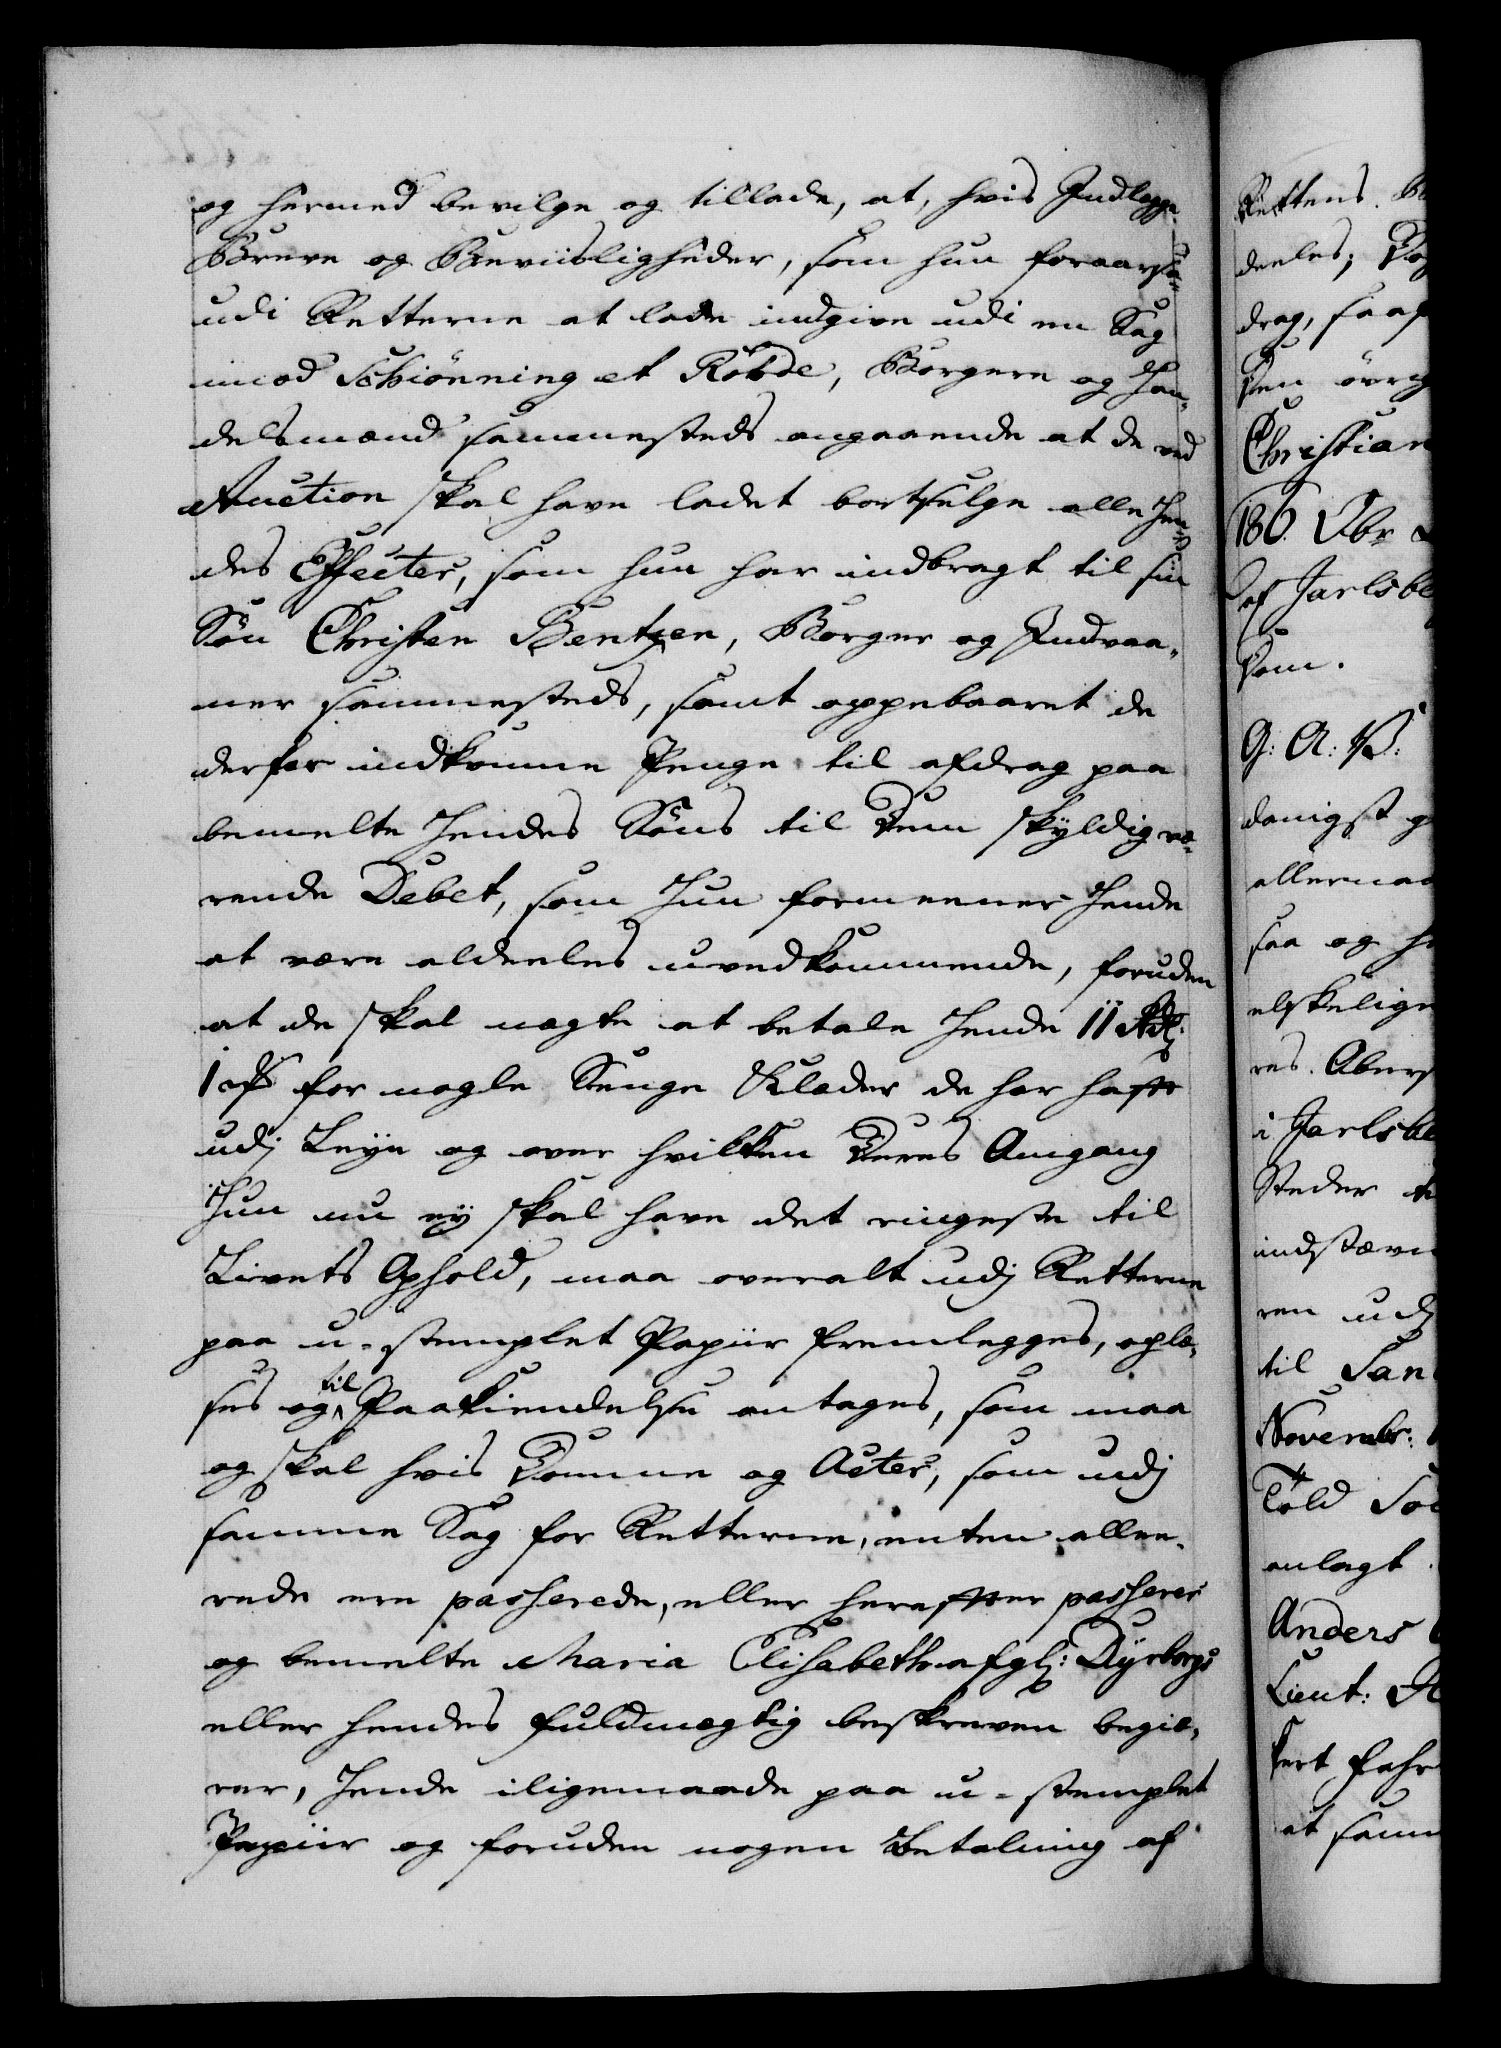 og hermed bevilge og tillade, at, hvis Indlegge
Breve og Beviisligheder, som hun foraarsa-
udi Retterne at lade indgive udi en Sag
imod Schiønning et Rohde, Borgere og Han-
delsmænd sammesteds angaaende at de ved
Auction skal have ladet bortselge alle Hen-
des Effecter, som hun har indbragt til sin
Søn Christen Bentzen, Borger og Indvaa-
ner sammesteds, samt oppebaaret de
derfor indkomne Penge til afdrag paa
bemelte Hendes Søns til Dem skyldig væ-
rende Debet, som Hun formeener Hende
at være aldeeles uvedkommende, foruden
at de skal nægte at betale Hende 11 Rdl:
1 # for nogle Senge Klæder de har hafft
udj Leye og over hvilken Deres Omgang
Hun nu ey skal have det ringeste til
Livets Ophold, maa overalt udj Retterne
paa u-stemplet Papiir fremlegges, oplæ-
ses og til Paakiendelse antages, som maa
og skal hvis Domme og Acter, som udj
samme Sag for Retterne, enten alle-
rede ere passerede, eller herefter passerer
og bemelte Maria Elisabeth afgl: Dyrborgs
eller hendes fuldmægtig beskreven begiæ-
rer, Hende iligemaade paa u-stemplet
Papiir og foruden nogen Betaling af
Rettens
deeles;
drag, saa
Den øvrig
Christian
180
af Jarlsbe
Dom.
G: A: V:
danigst
allernaa
saa og
elskelige
res.
i Jarlsbe
Steder
indstævn
ren udj
til San
Novembr:
Told
anlagt
Anders
Lieut:
at samm